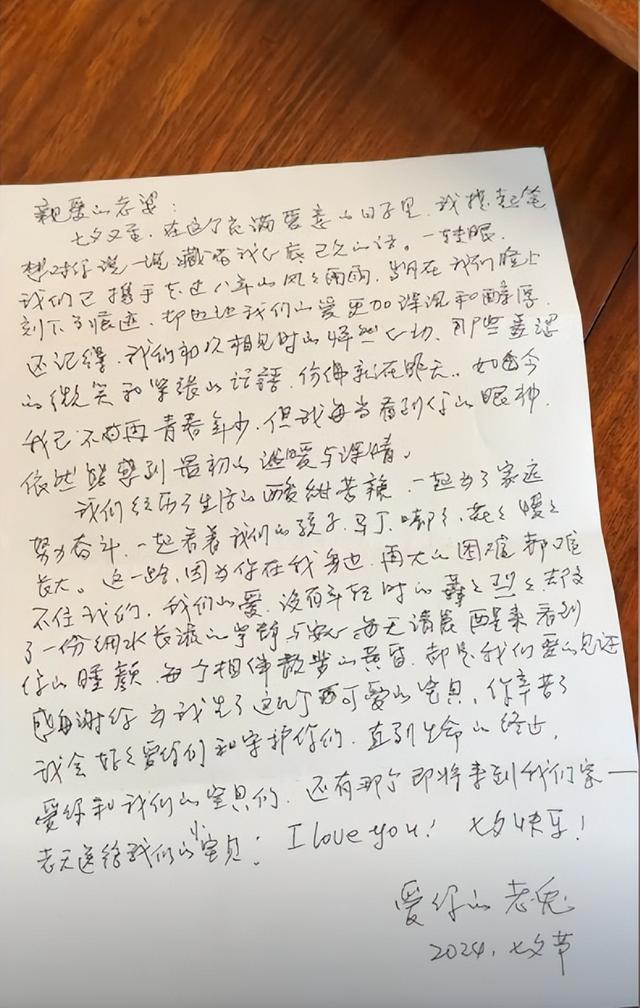 亲爱的老婆：
七夕又至，在这个充满爱意的日子里，我提起笔
想对你说一说藏着我心底已久的话。一转眼，
我们已携手走过八年的风风雨雨，岁月在我们脸上
刻下了痕迹，却也让我们的爱更加深沉和醇厚。
还记得，我们初次相见时的怦然心动，那些羞涩
的微笑和紧张的话语，仿佛就在昨天。如今
我已不再青春年少，但我每当看到你的眼神，
依然能感到最初的温暖与深情。
我们经历了生活的酸甜苦辣，一起为了家庭
努力奋斗，一起看着我们的孩子，慢慢
长大。这一路，因为你在我身边，再大的困难都难
不住我们，我们的爱，没有年轻时的轰轰烈烈，却多
了一份细水长流的宁静与安心，每天清晨醒来看到
你的睡颜，每个相伴散步的黄昏，都是我们爱的见证
感谢你为我生了这几个可爱的宝贝，你辛苦了
我会好好爱你们和守护你们，直到生命的终止，
爱你和我们的宝贝们，还有那个即将来到我们家——
老天送给我们的小宝贝！I love you！七夕快乐！
爱你的老兔
2024，七夕节